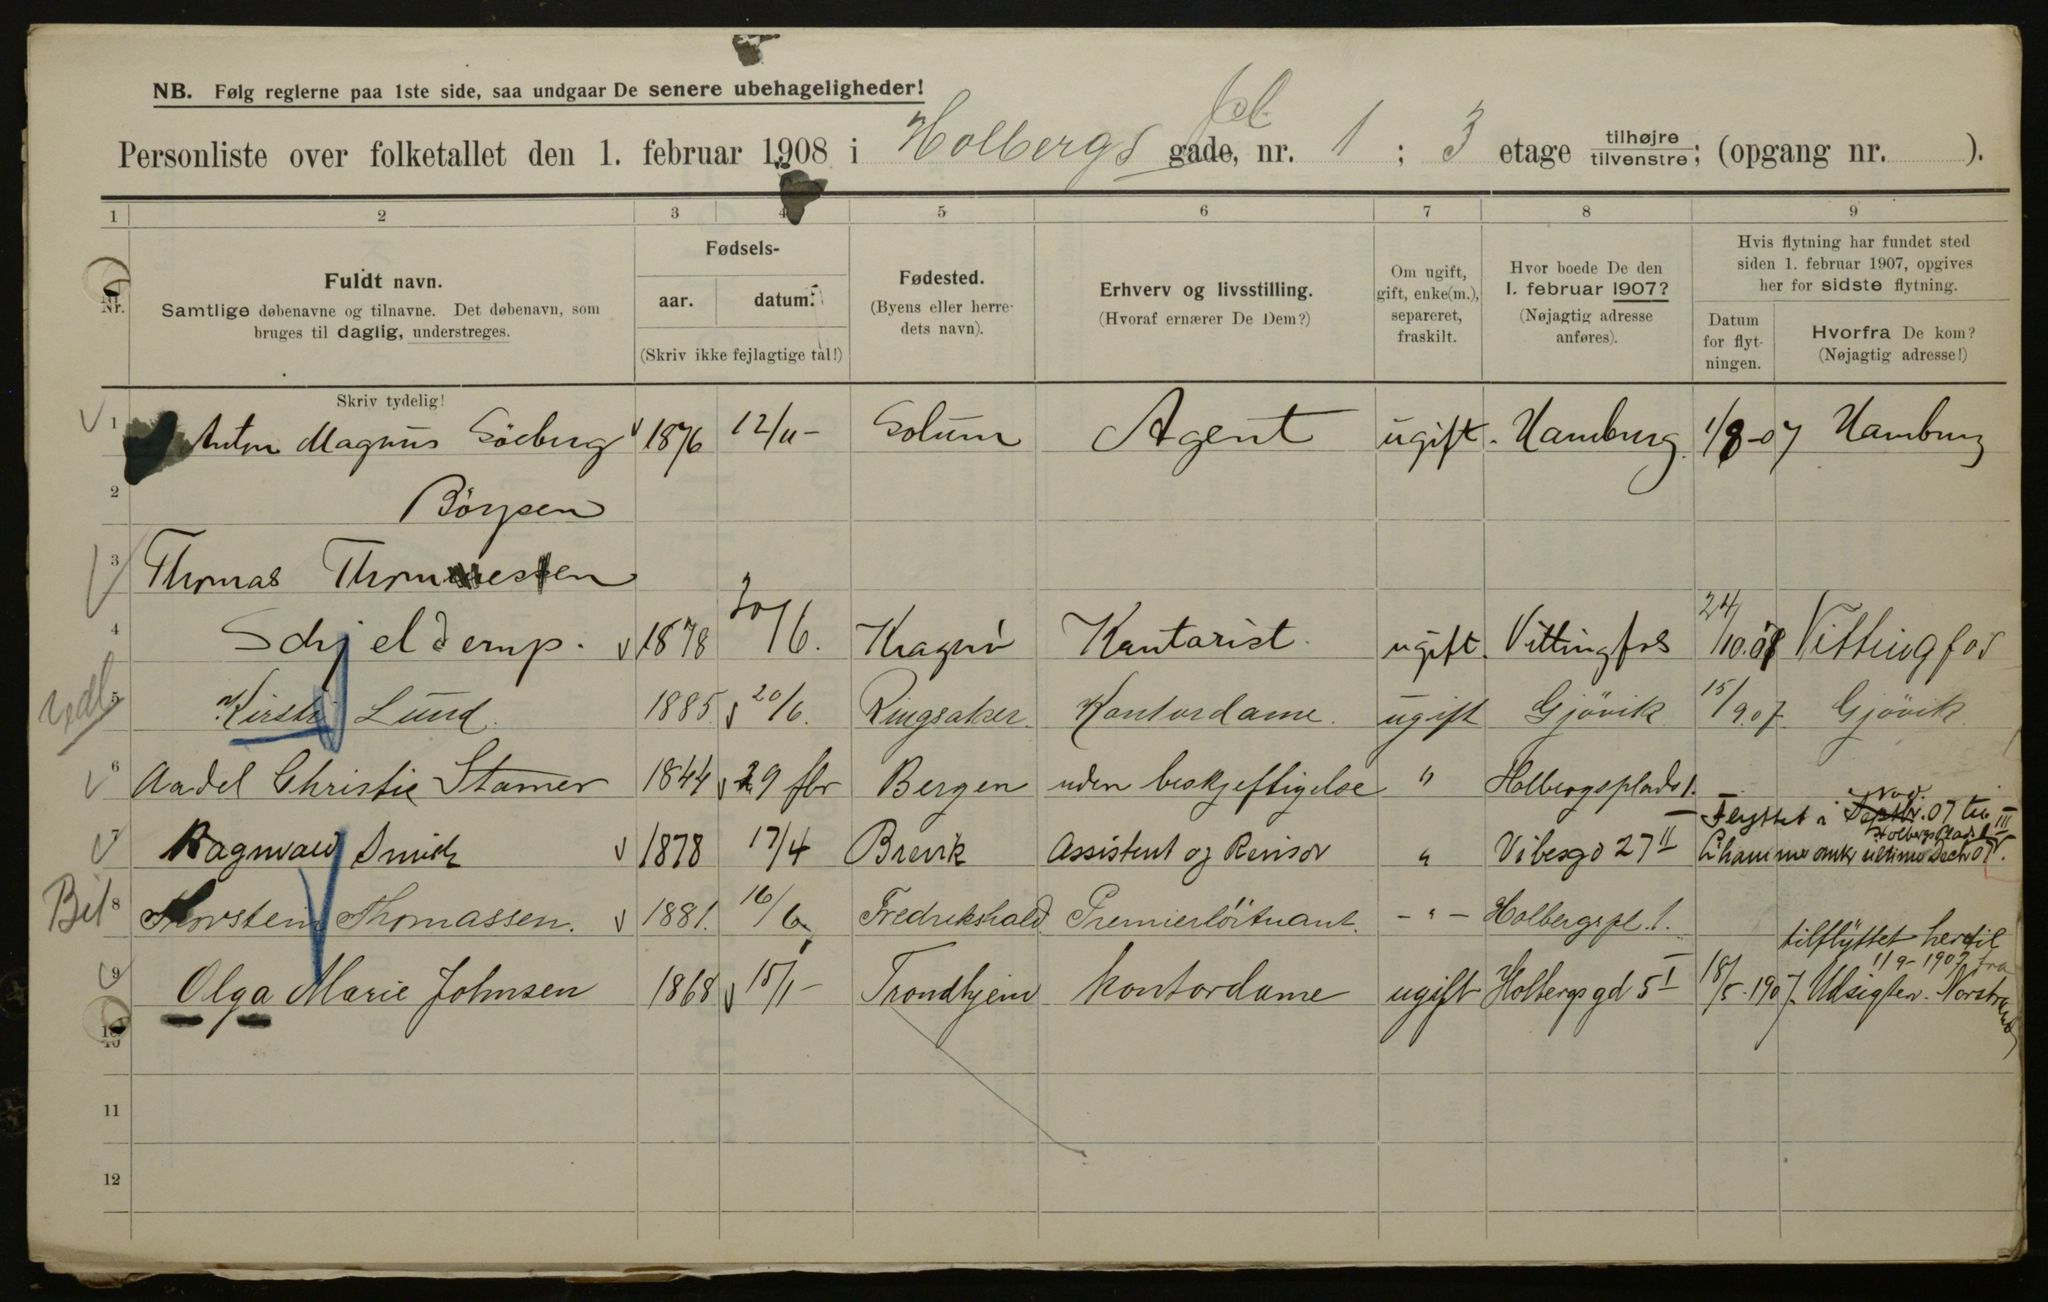 NB. Følg reglerne paa 1ste side, saa undgaar De senere ubehageligheder!
Personliste over folketallet den 1. februar 1908 i Holbergs pl. gade, nr. 1 ; 3 etage tilhøjre tilvenstre; (opgang nr. ).
1 2 3 4 5 6 7 8 9
Nr.
Fuldt navn.
Samtlige døbenavne og tilnavne. Det døbenavn, som
bruges til daglig, understreges.
Skriv tydelig!
Fødsels-
aar. datum.
(Skriv ikke fejlagtige tal!)
Fødested.
(Byens eller herre-
dets navn).
Erhverv og livsstilling.
(Hvoraf ernærer De Dem?)
Om ugift,
gift, enke(m.),
separeret,
fraskilt.
Hvor boede De den
1. februar 1907?
(Nøjagtig adresse
anføres).
Hvis flytning har fundet sted
siden 1. februar 1907, opgives
her for sidste flytning.
Datum
for flyt-
ningen.
Hvorfra De kom?
(Nøjagtig adresse!)
1 Anton Magnus Söeberg 1876 12/11- Solum Agent ugift. Hamburg 1/8-07 Hamburg
2 Börjsen
3 Thomas Thommesen
4 Schjelderup. 1878 30/6. Kragerö Kontorist. ugift. Vittingfos 24/10.07 Vittingfos
Vedl. 5 Kirsti Lund. 1885. 20/6. Ringsaker Kontordame. ugift Gjövik 15/9.07. Gjövik
6 Aadel Christie Stamer 1844 29 fbr Bergen uden beskjeftigelse " Holbergsplads 1.
7 Ragnvald Smith 1878 17/4 Brevik Assistent og Revisor " Vibesgd 27 II Flyttet i Septbr. Nov. 07 til Holbergs Plads 1 III
ultimo Dech 07.
8 Thorstein Thomassen. 1881. 16/6 Fredrikshald Premierlöitnant. - " - Holbergspl. 1.
9 Olga Marie Johnsen 1868 15/1- Trondhjem Kontordame ugift Holbergsgd 5 I 18/5.1907. tilflyttet hertil
11 9-1907 fra
Udsigten. Norstrand
10
11
12